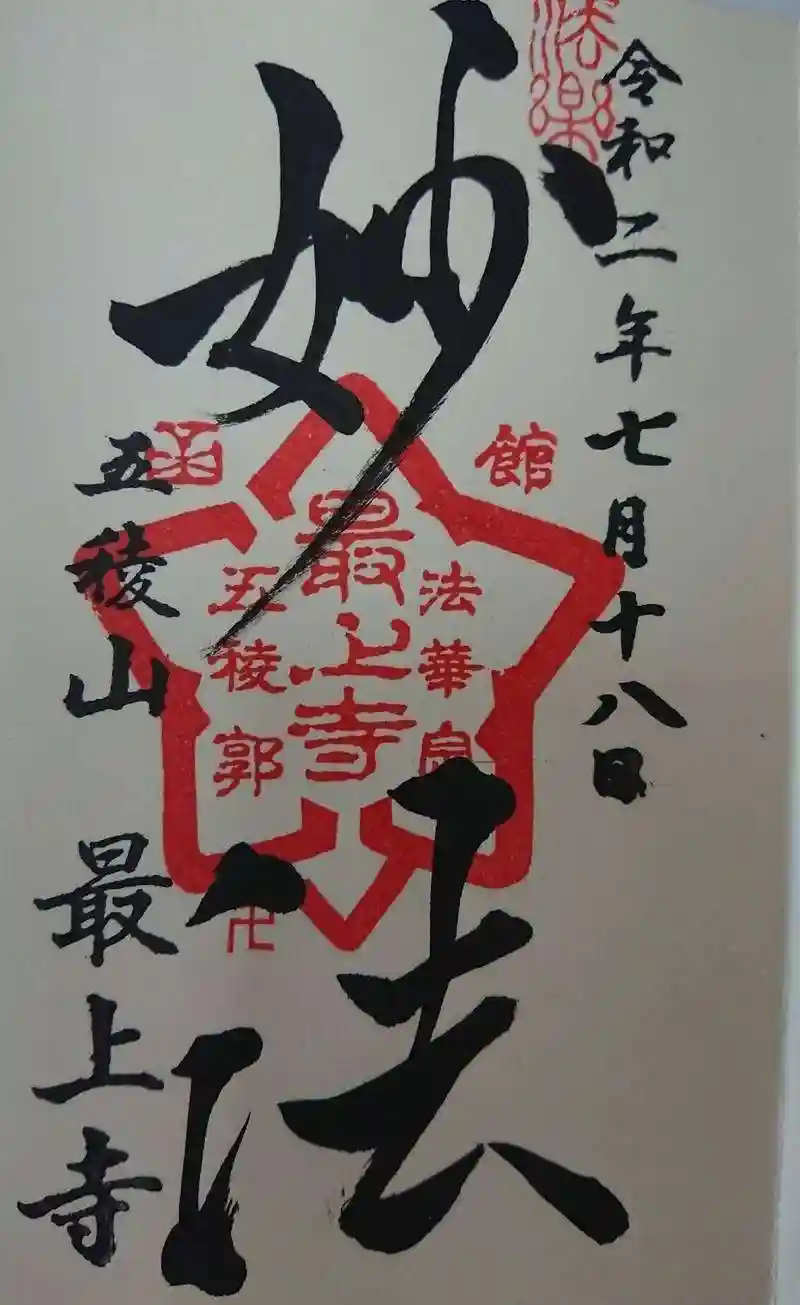 法楽
令和二年七月十八日
妙法
函館
法華宗
最上寺
五稜郭
卍
五稜山 最上寺